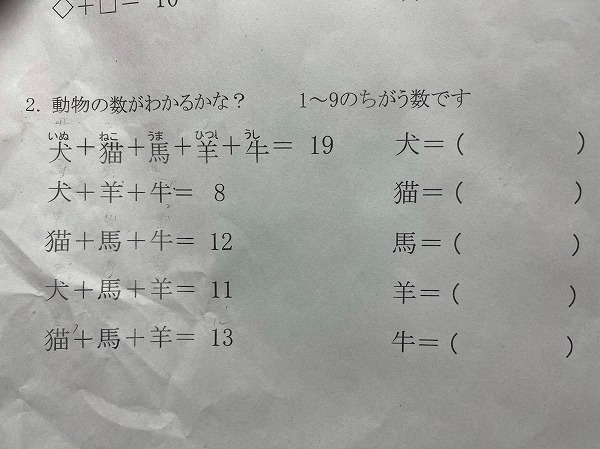 ◇+□= 10
2. 動物の数がわかるかな？ 1～9のちがう数です
いぬ ねこ うま ひつじ うし
犬+猫+馬+羊+牛= 19 犬=( )
犬+羊+牛= 8 猫=( )
猫+馬+牛= 12 馬=( )
犬+馬+羊= 11 羊=( )
猫+馬+羊= 13 牛=( )